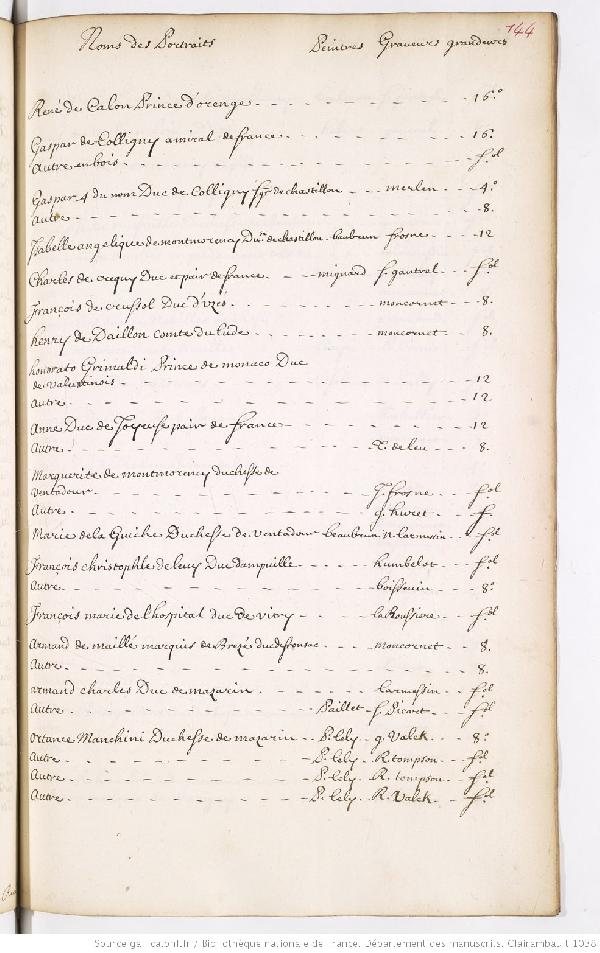 144
Noms des Portraits Peintres Graveurs grandeurs
René de Calon Prince d'orenge - - - 16.o
Gaspar de Colligny amiral de france - - - 16.
Autre en bois - - - f.ol
Gaspar 4 du nom Duc de Colligny Sgr de chastillon - - merlen - - 4.o
Autre - - - 8.
Isabelle angelique de montmorency Du.e de chastillon - baubrun frosne - - 12
Charles de crequy Duc et pair de france - - mignard f. gantrel - - f.ol
françois de crussol Duc d'uzés - - - moncornet - - 8.
henry de Daillon comte du lude - - - moncornet - - 8.
honorato Grimaldi Prince de monaco Duc
de valentinois - - - 12
Autre - - - 12
Anne Duc de Joyeuse pair de france - - - 12
Autre - - - T. de leu - - 8.
Marguerite de montmorency duchesse de
ventadour - - - J. frosne - - f.ol
Autre - - - g. huret - - f.
Marie de la Guiche Duchesse de ventadour beaubrun n. larmessin - - f.ol
françois christophle de levy Duc dampville - - - humbelot - - f.ol
Autre - - - boissevin - - 8.o
françois marie de l'hospital duc de vitry - - - la Roussiere - - f.ol
Armand de maillé marquis de Brezé duc de fronsac - - - moncornet - - 8.
Autre - - - 8.
armand charles Duc de mazarin - - - larmessin - - f.ol
Autre - - - Paillet - f. Picart - - f.ol
ortance Manchini Duchesse de mazarin - - P. Lely - g. Valck - - 8.o
Autre - - - P. Lely - R. tompson - - f.ol
Autre - - - P. Lely - R. tompson - - f.ol
Autre - - - P. Lely - R. Valck - - f.ol
Source gallica.bnf.fr / Bibliothèque nationale de France. Département des manuscrits. Clairambault 1038